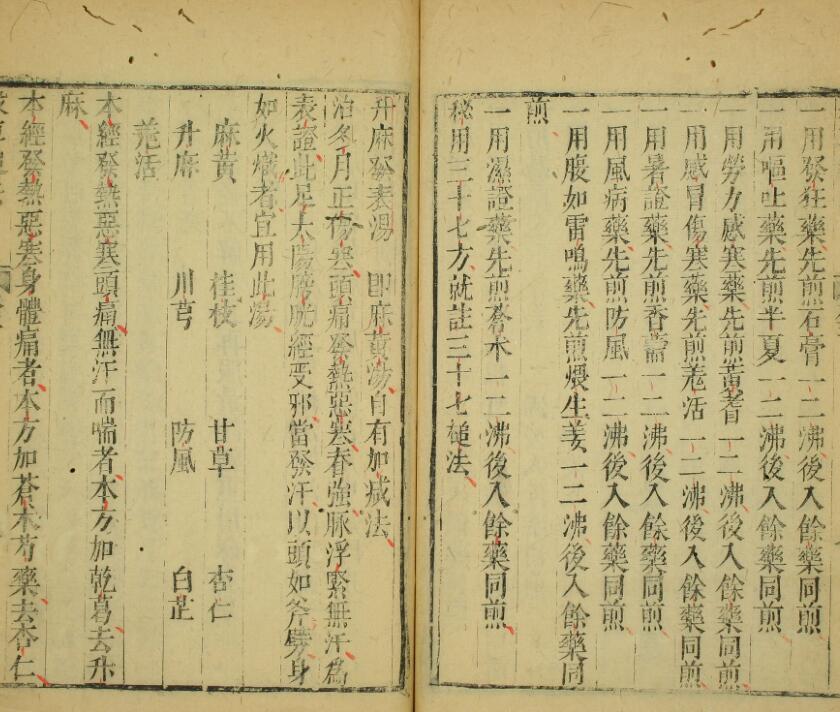 一用發狂藥先煎石膏一二沸後入餘藥同煎
一用嘔吐藥先煎半夏一二沸後入餘藥同煎
一用勞力感寒藥先煎黃耆一二沸後入餘藥同煎
一用感冒傷寒藥先煎羌活一二沸後入餘藥同煎
一用暑證藥先煎香薷一二沸後入餘藥同煎
一用風病藥先煎防風一二沸後入餘藥同煎
一用腹如雷鳴藥先煎煨生姜一二沸後入餘藥同
煎
一用濕證藥先煎蒼朮一二沸後入餘藥同煎
秘用三十七方就註三十七槌法
升麻發表湯 即麻黃湯自有加减法
治冬月正傷寒頭痛發熱惡寒脊強脉浮緊無汗為
表證此足太陽膀胱經受邪當發汗以頭如斧劈身
如火熾者宜用此湯
麻黃 桂枝 甘草 杏仁
升麻 川芎 防風 白芷
羌活
本經發熱惡寒頭痛無汗而喘者本方加乾葛去升
麻
本經發熱惡寒身體痛者本方加蒼朮芍藥去杏仁